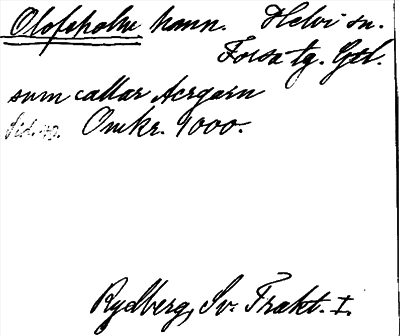 Olofsholm hamn. Helvi sn.
Forsa tg. Gtl.
sum callar Acrgarn
Sid. 49. Omkr. 1000.
Rydberg, Sv. Trakt. I.